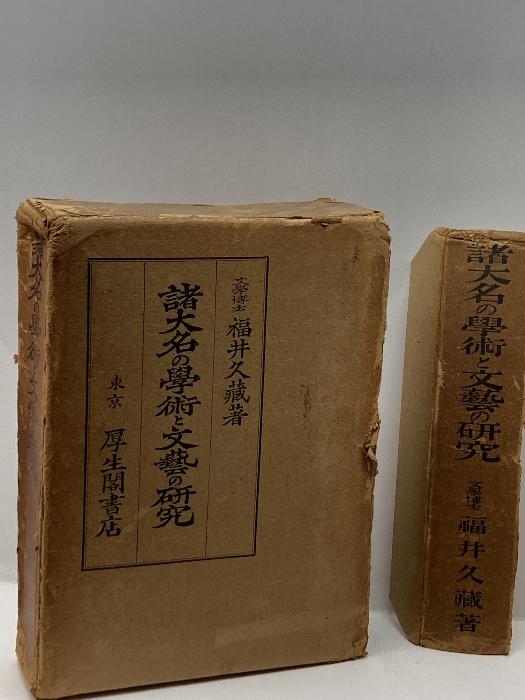 文學博士 福井久藏著
諸大名の學術と文藝の研究
東京 厚生閣書店
諸大名の學術と文藝の研究
文學博士 福井久藏著
諸大名の學術と文